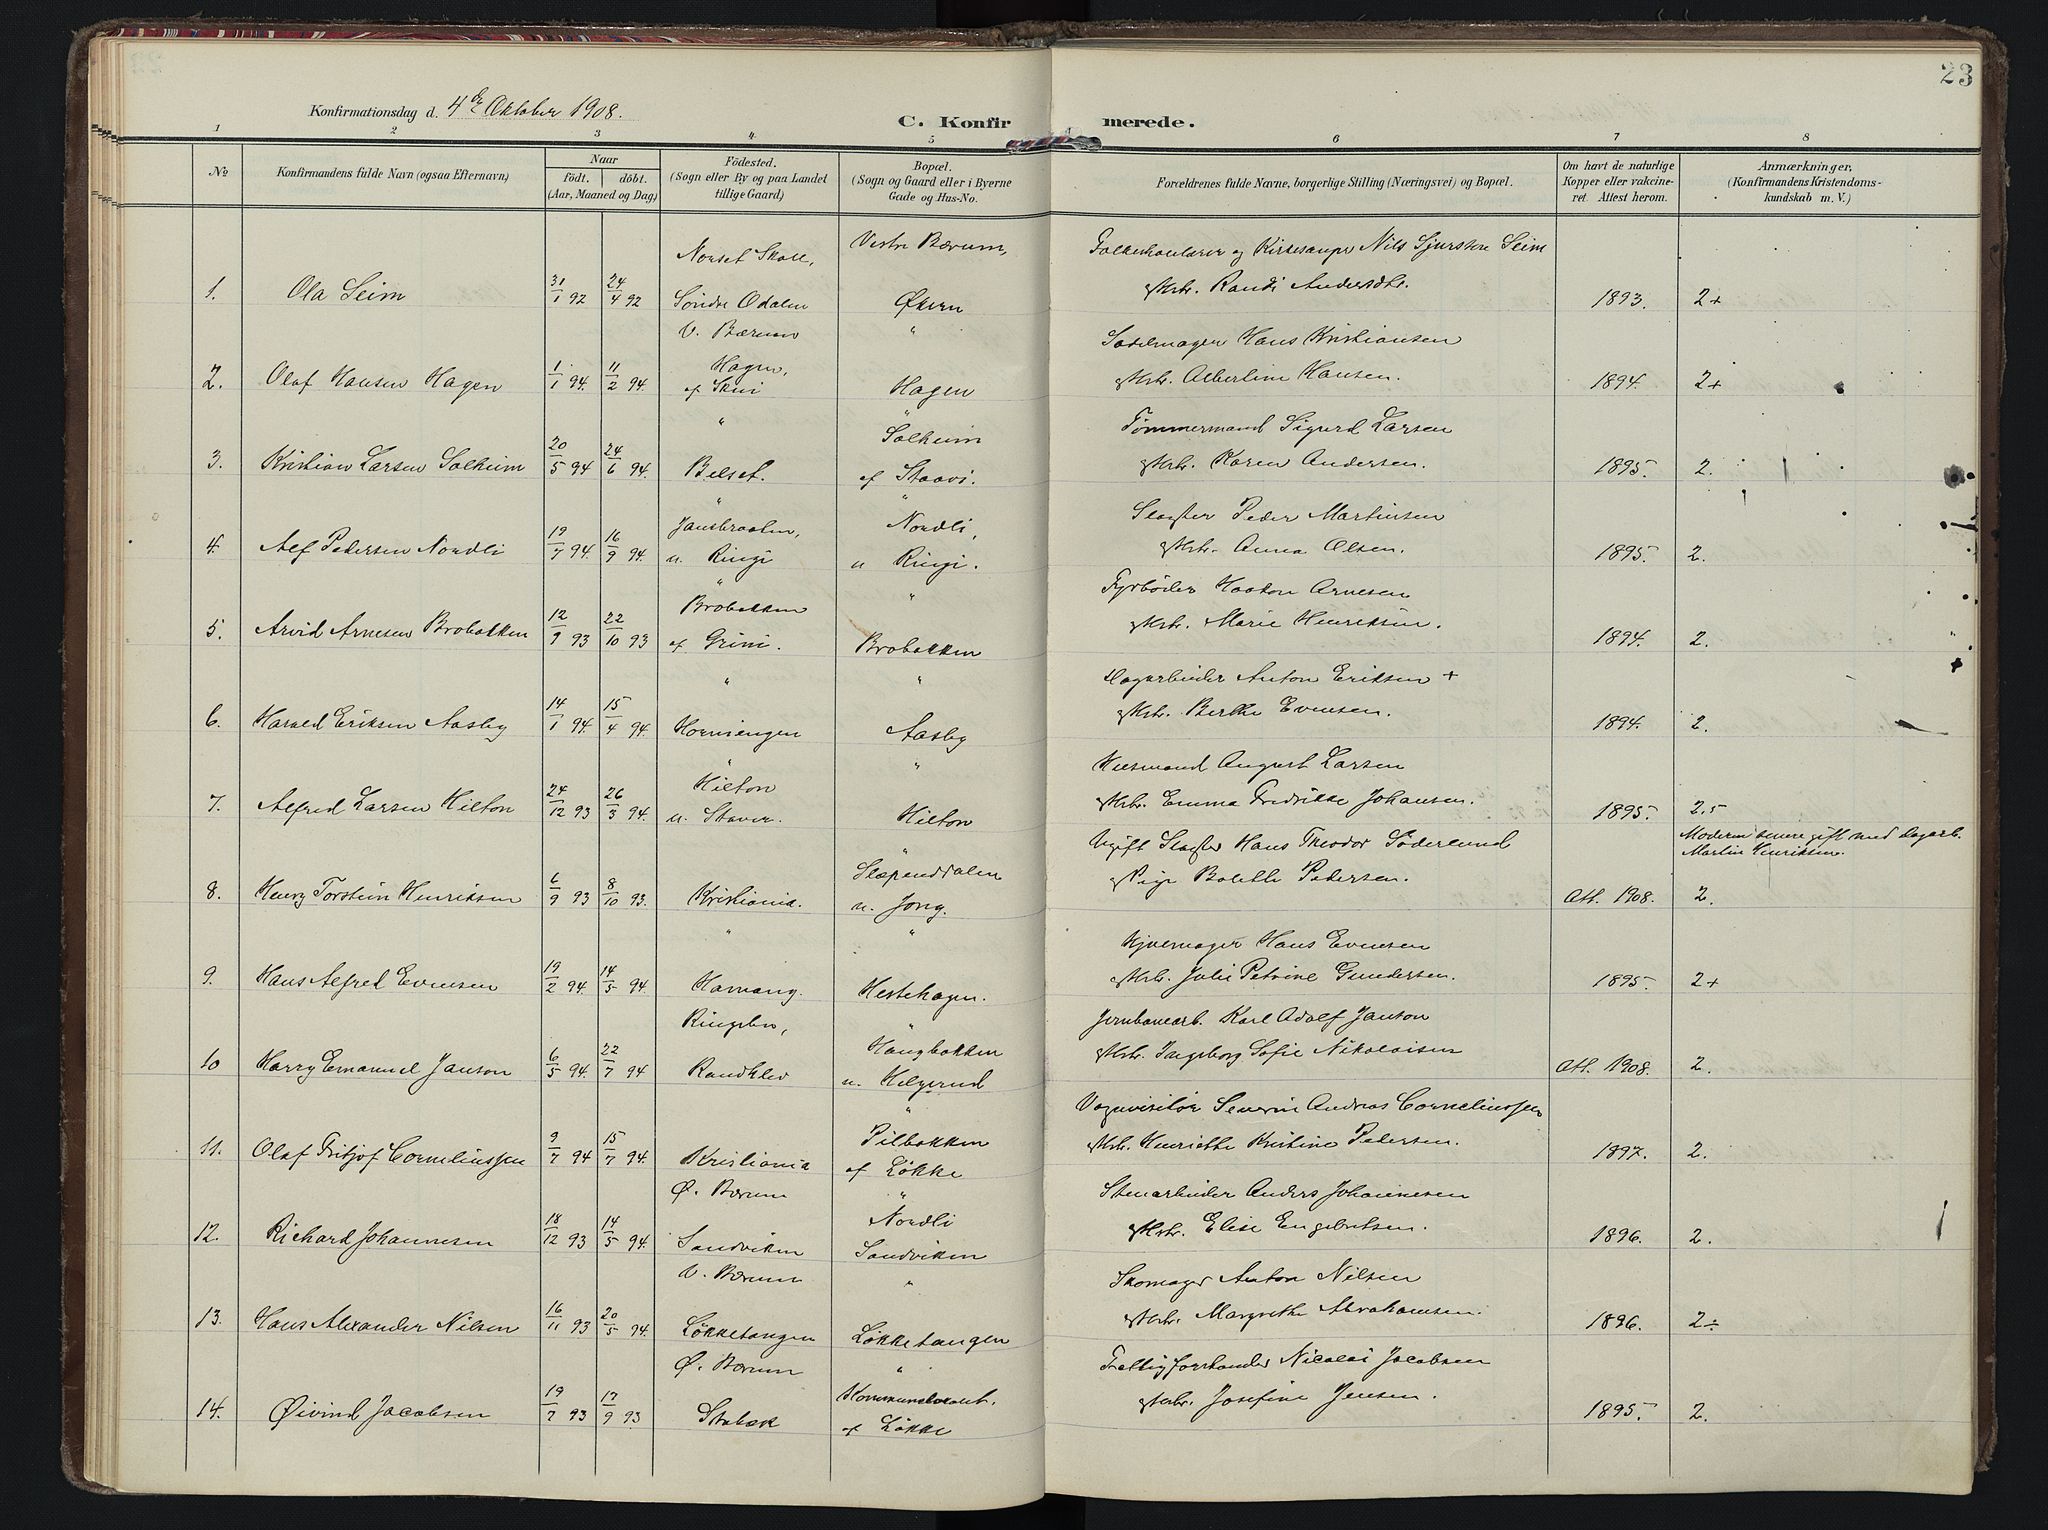 23
Konfirmationsdag d. 4de Oktober 1908.
C. Konfirmerede.
1 2 3 4 5 6 7 8
No
Konfirmandens fulde Navn (ogsaa Efternavn)
Naar
födt. döbt.
(Aar, Maaned og Dag)
Födested.
(Sogn eller By og paa Landet
tillige Gaard)
Bopæl.
(Sogn og Gaard eller i Byerne
Gade og Hus-No.
Forældrenes fulde Navne, borgerlige Stilling (Næringsvei) og Bopæl.
Om havt de naturlige
Kopper eller vakcine-
ret. Attest herom.
Anmærkninger,
(Konfirmandens Kristendoms-
kundskab m. V.)
Vestre Bærum,
og Kirkesanger Nils Sjursen Seim
1. Ola Seim 31/1 92 24/4 92 Søndre Odalen Økern
Randi Andersdtr. 1893. 2+
V. Bærum "
Sadelmager Hans Kristiansen
Hagen,
2. Olaf Hansen Hagen 1/1 94. 11/2 94. af Skui Hagen
Albertine Hansen. 1894. 2+
" "
Solheim Tømmermand Sigurd Larsen
3. Kristian Larsen Solheim 20/5 94 24/6 94. Belset.
Karen Andersen. 1895. 2.
" "
Nordli, Slagter Peder Martinsen
4. Alf Pedersen Nordli 19/7 94. 16/9 94. u. Ringi u Ringi.
Anna Olsen. 1895. 2.
" "
Brobakken Fyrbøder Haaton Arnesen
5. Arvid Arnesen Brobakken 12/9 93 22/10 93 af Grini. Brobakken
Marie Henriksen. 1894. 2.
" "
Anton Eriksen +
6. Harald Eriksen Aasby 14/1 94. 15/4 94. Hornsengen Aasby
Berthe Evensen. 1894. 2.
" "
Hilton Husmand August Larsen
7. Alfred Larsen Hilton 24/12 93 26/3 94. u. Staver. Hilton
Emma Fredrikke Johansen. 1895. 2,5
"
Ugift Slagter Hans Theodor Söderlund
Moderen senere gift med Dagarb.
Martin Henriksen.
Slæpenddalen
8. Henry Torstein Henriksen 6/9 93 8/10 93. Kristiania. u. Jong.
Pige Bolette Pedersen. Att. 1908. 2.
" "
Hans Evensen
9. Hans Alfred Evensen 19/2 94. 14/5 94. Hamang. Hestehagen.
Julie Petrine Gundersen. 1895. 2+
Ringebu, "
Jernbanearb. Karl Adolf Janson
Haugbakken
10 Harry Emanuel Janson 6/5 94. 22/7 94 Randklev u. Helgerud
Ingeborg Sofie Nikolaisen Att. 1908. 2.
"
Vognvisitør Severin Andreas Corneliussen
Pilbakken
11. Olaf Fritjof Corneliussen 9/7 94 15/7 94. Kristiania af Løkke
Henriette Kristine Pedersen. 1897. 2.
Ø. Bærum "
Stenarbeider Anders Johannesen
Nordli
12. Richard Johannesen 18/12 93 14/5 94. Sandviken Sandviken
Elise Engebretsen. 1896. 2.
V. Bærum "
Skomager Anton Nilsen
13. Hans Alexander Nilsen 16/11 93 20/5 94. Løkketangen Løkketangen
Margrethe Abrahamsen. 1896. 2÷
Ø. Bærum "
Fattigforstander Nicolai Jacobsen
14. Øivind Jacobsen 19/7 93 17/9 93 Stabæk af Løkke
Josefine Jensen. 1895. 2.